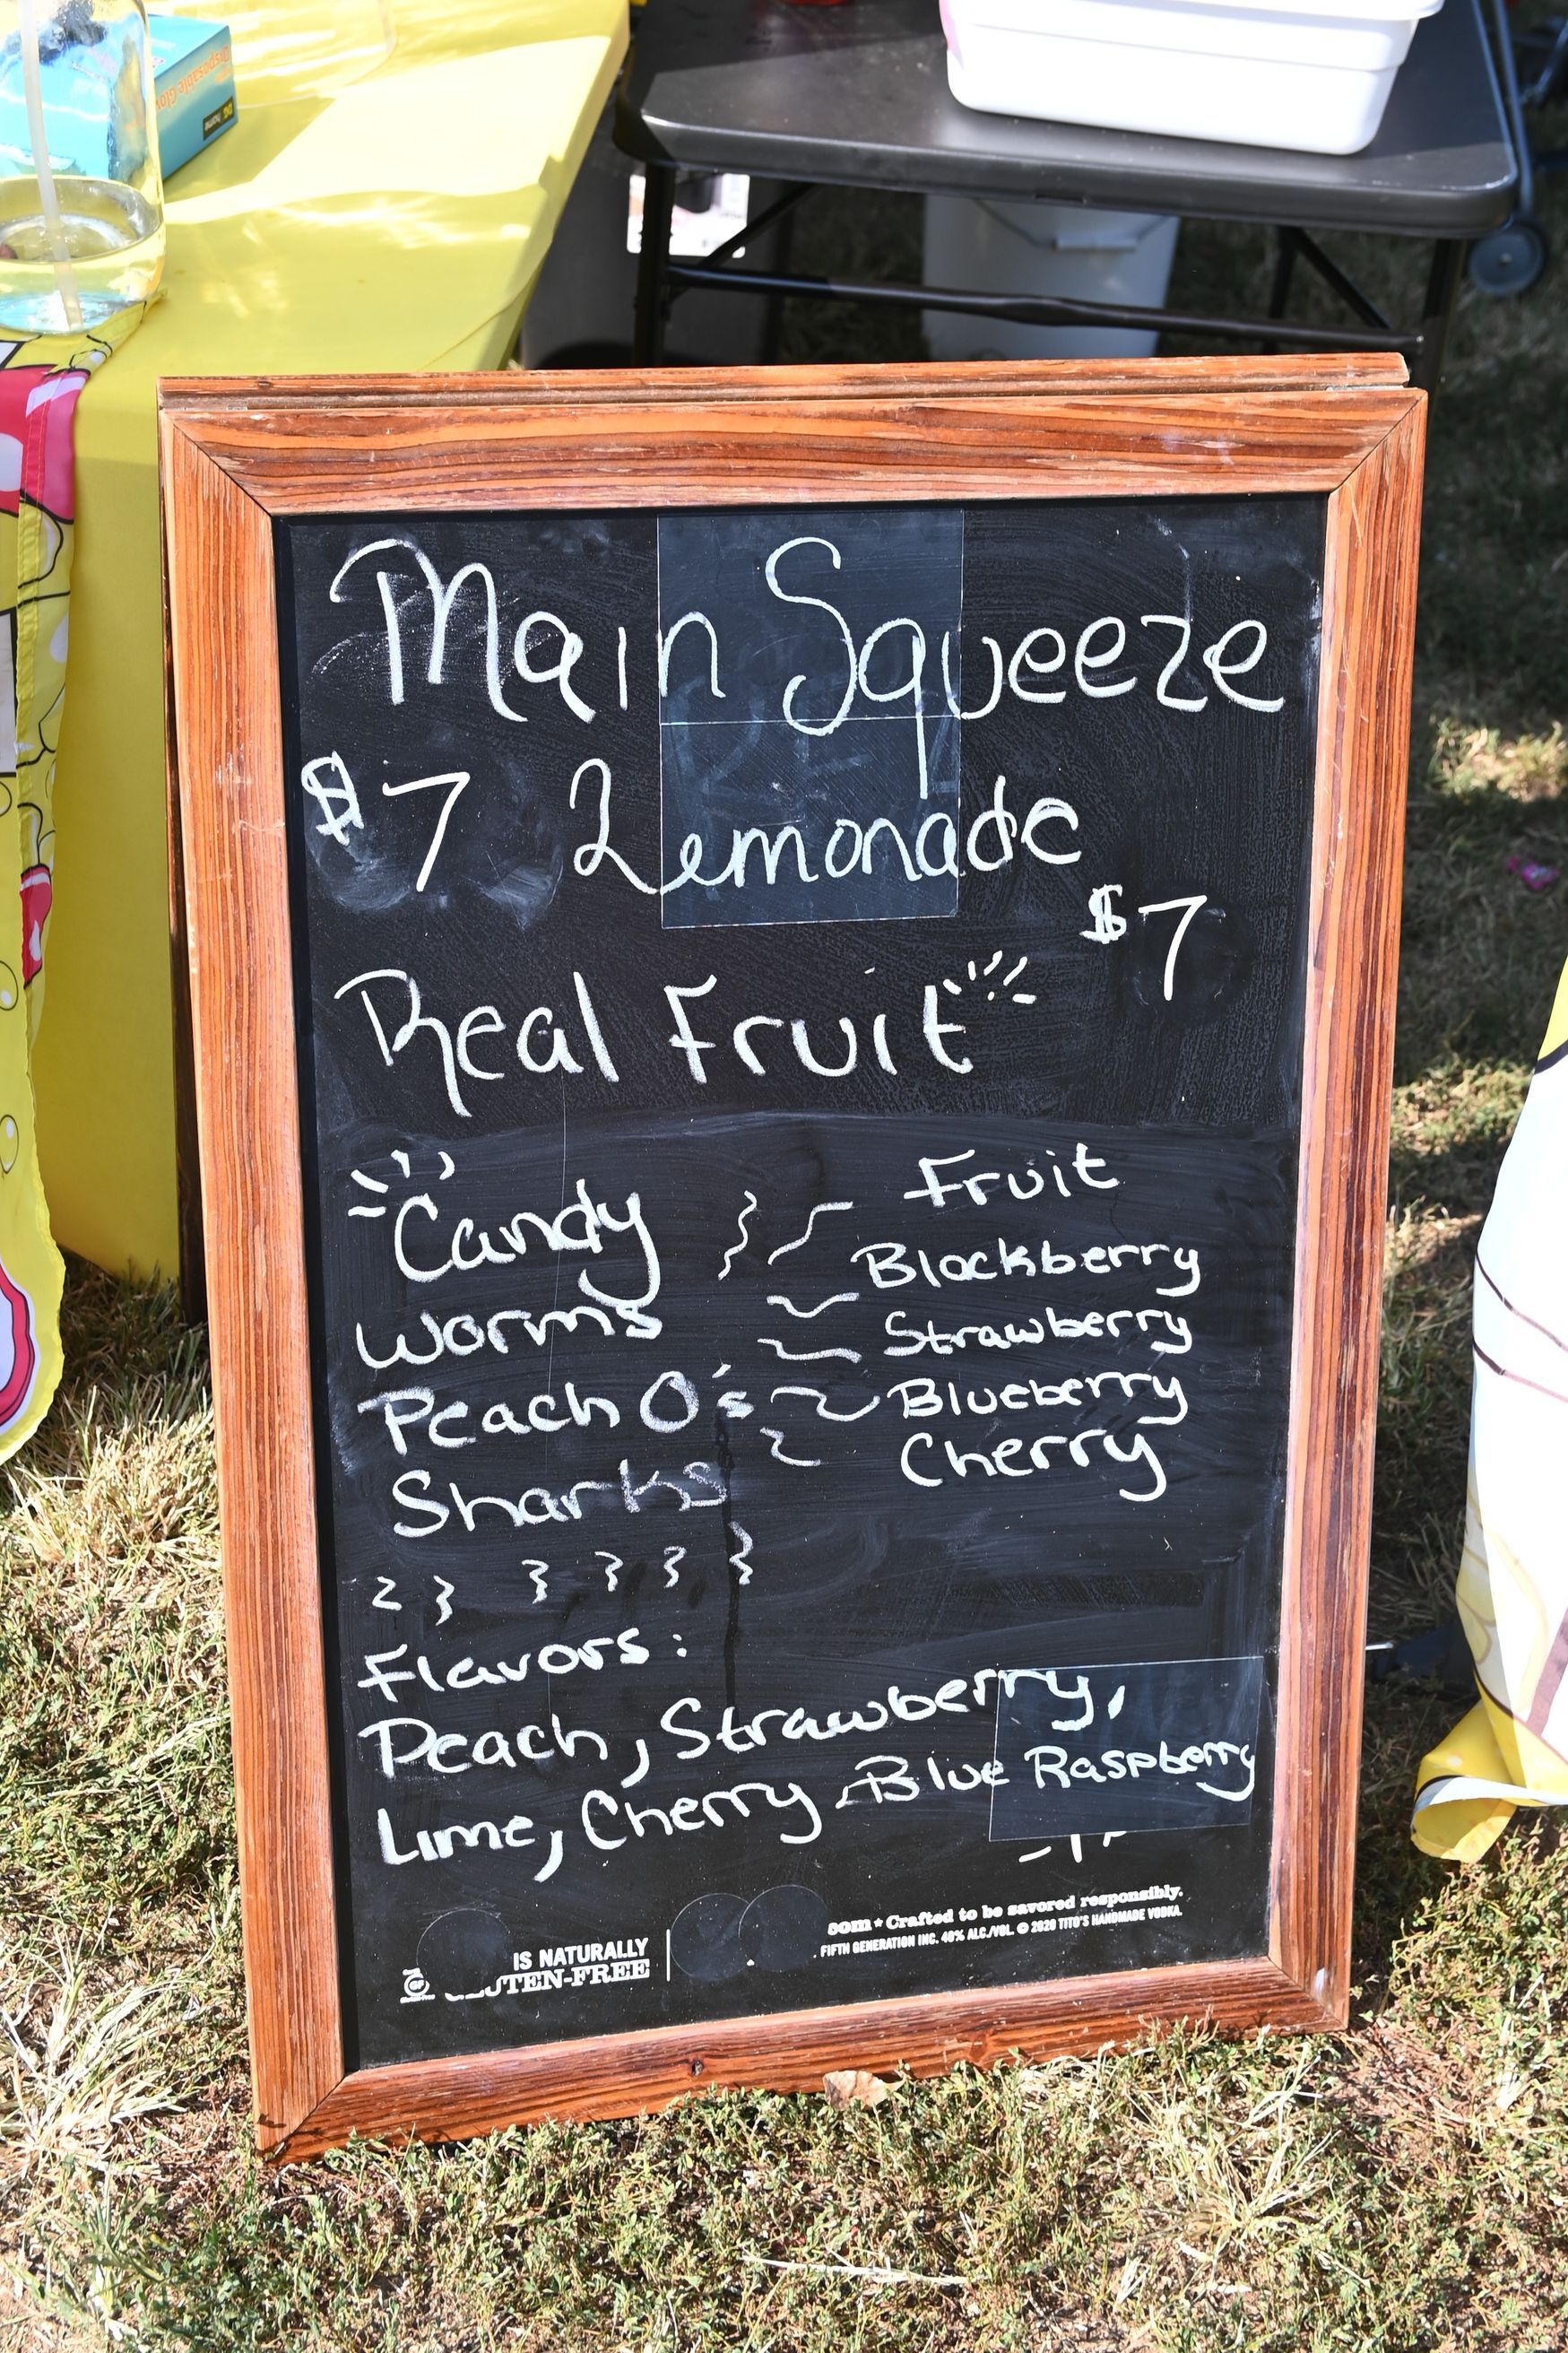 Disposable Glov
DG home
Main Squeeze
$7 Lemonade $7
Real Fruit
Candy
Worms
Peach O's
Sharks
Fruit
Blackberry
Strawberry
Blueberry
Cherry
Flavors:
Peach, Strawberry,
Lime, Cherry, Blue Raspberry
IS NATURALLY
UTEN-FREE
GF
som * Crafted to be savored responsibly.
FIFTH GENERATION INC. 40% ALC./VOL. © 2020 TITO'S HANDMADE VODKA.